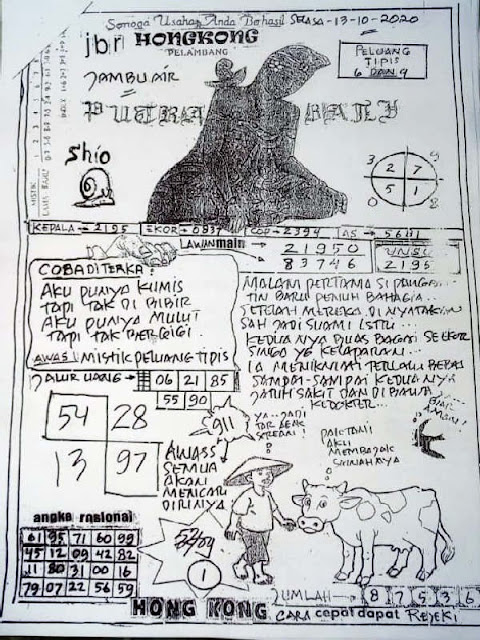 Semoga Usaha Anda Berhasil SELASA-13-10-2020
jbr HONGKONG
PELAMBANG
JAMBU AIR
PUTRA
PELUANG
TIPIS
6 DAN 9
Shio
3 0
2 7
5 1
9 8
KEPALA → 2195 EKOR → 0837 COP → 2394 AS →
LAWAN main
21950
83746
2195
COBA DITERKA:
AKU PUNYA KUMIS
TAPI TAK DI BIBIR
AKU PUNYA MULUT
TAPI TAK BERGIGI.
AWAS! MISTIK PELUANG TIPIS
MALAM PERTAMA SI
TIN BARU PENUH BAHAGIA...
SETELAH MEREKA DI NYATAKAN
SAH JADI SUAMI ISTRI...
KEDUA NYA BUAS BAGAI SEEKOR
SINGO YG KELAPARAN...
IA MENIKMATI TERLALU BEBAS
SAMPAI-SAMPAI KEDUANYA
JATUH SAKIT DAN DI BAWA
JALUR UANG → 06 21 85
55 90
54 28
13 97
911
AWASS
SEMUA
AKAN
MENCARI
DIRINYA
YA..JADI
BIAR
AMAN!
PAK TANI
AKU
MEMBAJAK
SAWAHNYA
angka rasional
61 95 71 60 99
45 12 09 42 82
11 80 31 00 16
79 07 22 56 59
1
JUMLAH → 8 7 5 3 6
HONG KONG CARA cepat dapat REJEKI